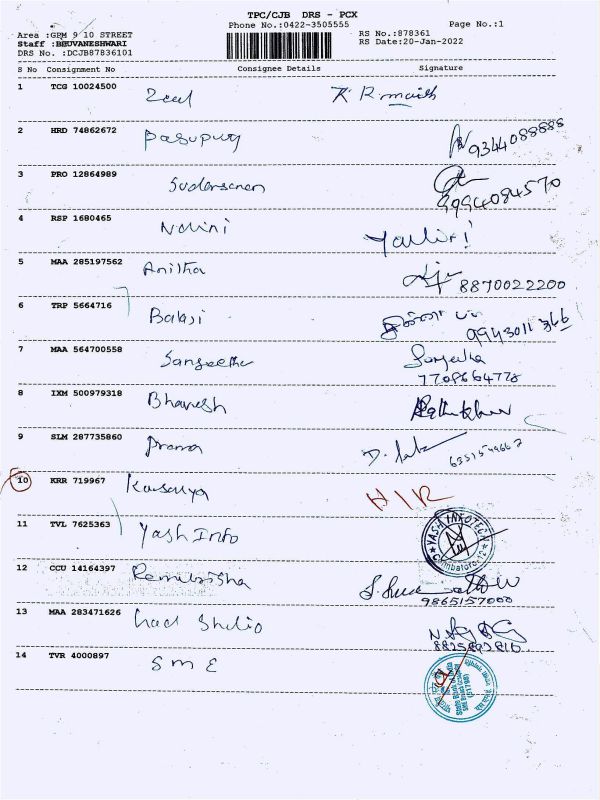 TPC/CJB DRS - PCX
Phone No.:0422-3505555
Page No.:1
Area :GPM 9 10 STREET
Staff :BHUVANESHWARI
DRS No. :DCJB87836101
RS No.:878361
RS Date:20-Jan-2022
S No Consignment No Consignee Details Signature
1 TCG 10024500 Zeal
2 HRD 74862672 9344088888
3 PRO 12864989 Sudarsanan 9994084570
4 RSP 1680465 Nalini
5 MAA 285197562 Anitha 8870022200
6 TRP 5664716 Balaji 9943011366
7 MAA 564700558 Sangeetha Sangeetha
7708664778
8 IXM 500979318 Bhavesh
9 SLM 287735860
10 KRR 719967 Kausalya
11 TVL 7625363 Yash Info YASH INFOTECH Coimbatore-12
12 CCU 14164397 9865157000
13 MAA 283471626
14 TVR 4000897 SME